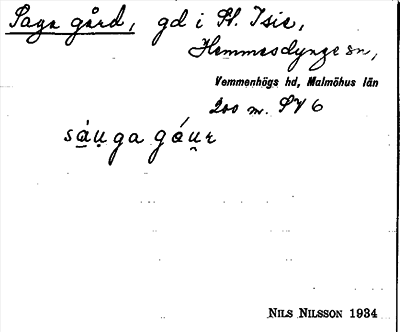 Saga gård, gd i St. Isie,
Hemmesdynge sn,
Vemmenhögs hd, Malmöhus län
200 m. SV 6
sáu̯ga góu̯r
NILS NILSSON 1934